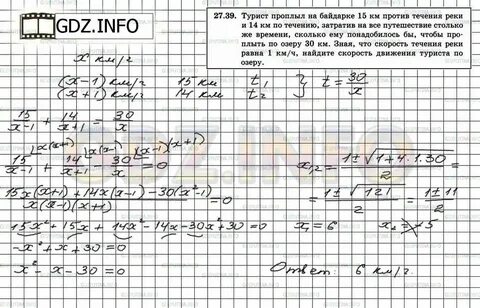 GDZ.INFO
27.39. Турист проплыл на байдарке 15 км против течения реки
и 14 км по течению, затратив на все путешествие столько
же времени, сколько ему понадобилось бы, чтобы про-
плыть по озеру 30 км. Зная, что скорость течения реки
равна 1 км/ч, найдите скорость движения туриста по
озеру.
x км/г
(x-1) км/г 15 км t₁ } t = 30/x
(x+1) км/г 14 км t₂
15/(x-1) + 14/(x+1) = 30/x
15/(x-1) + 14/(x+1) - 30/x = 0
(15x(x+1)+14x(x-1)-30(x²-1))/(x(x-1)(x+1)) = 0
15x²+15x+14x²-14x-30x²+30=0
-x²+x+30=0
x²-x-30=0
x₁,₂ = (1±√(1+4·1·30))/2 =
= (1±√121)/2 = (1±11)/2
x₁=6 x₂=-5
Ответ: 6 км/г.